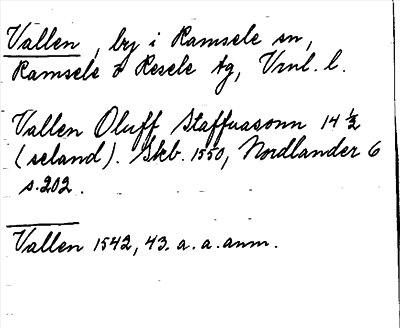 Vallen, by i Ramsele sn,
Ramsele & Resele tg, Vrnl. l.
Vallen Oluff Staffuasonn 14 ½
(seland). Skb. 1550, Nordlander 6
s. 202.
Vallen 1542, 43. a. a. anm.